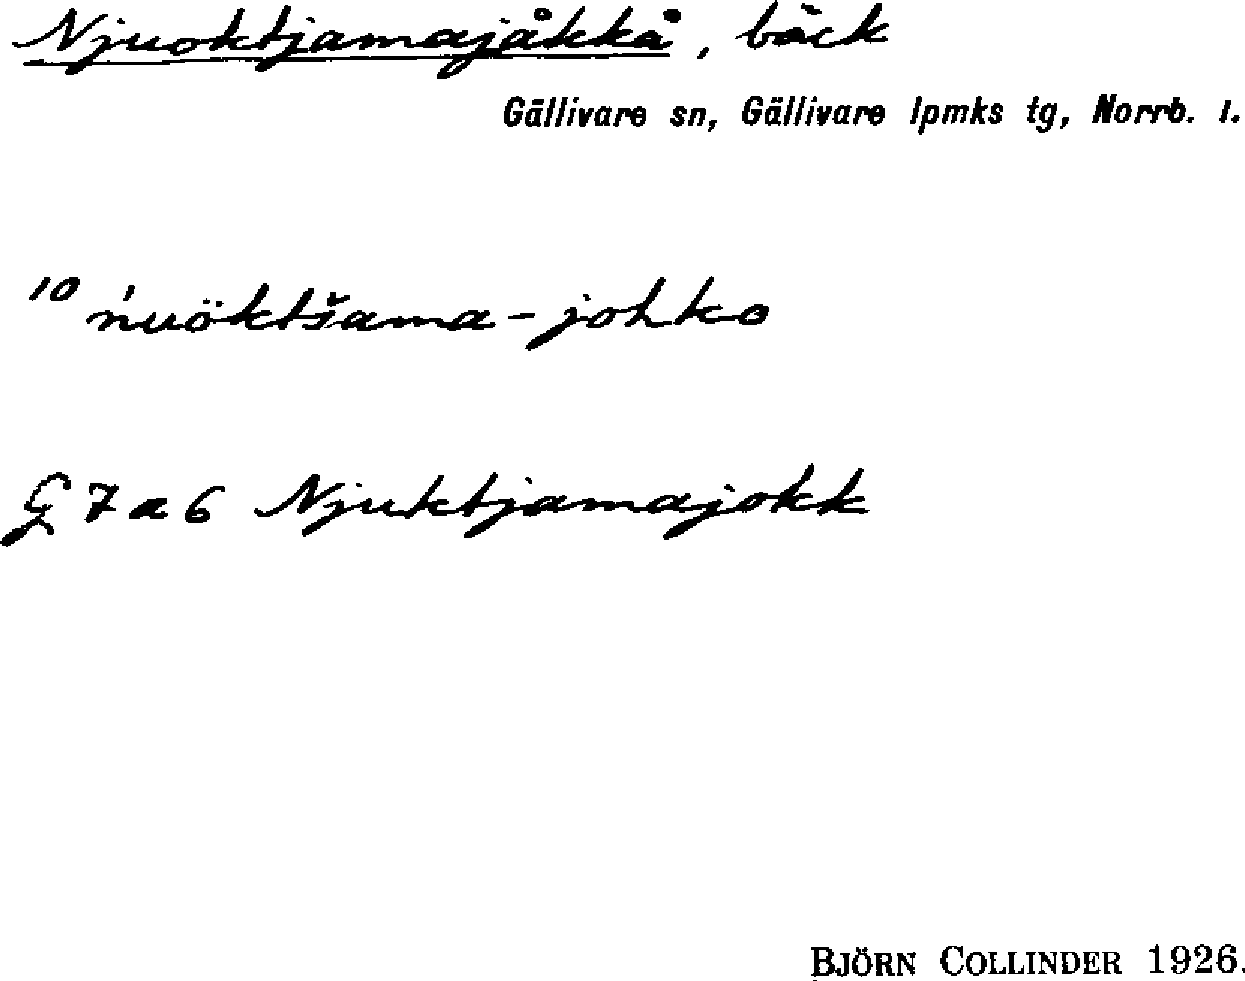 Njuoktjamajåkkå, bäck
Gällivare sn, Gällivare lpmks tg, Norrb. l.
10 ńuöktšama-johko
G 7 a 6 Njuktjamajokk
BJÖRN COLLINDER 1926.